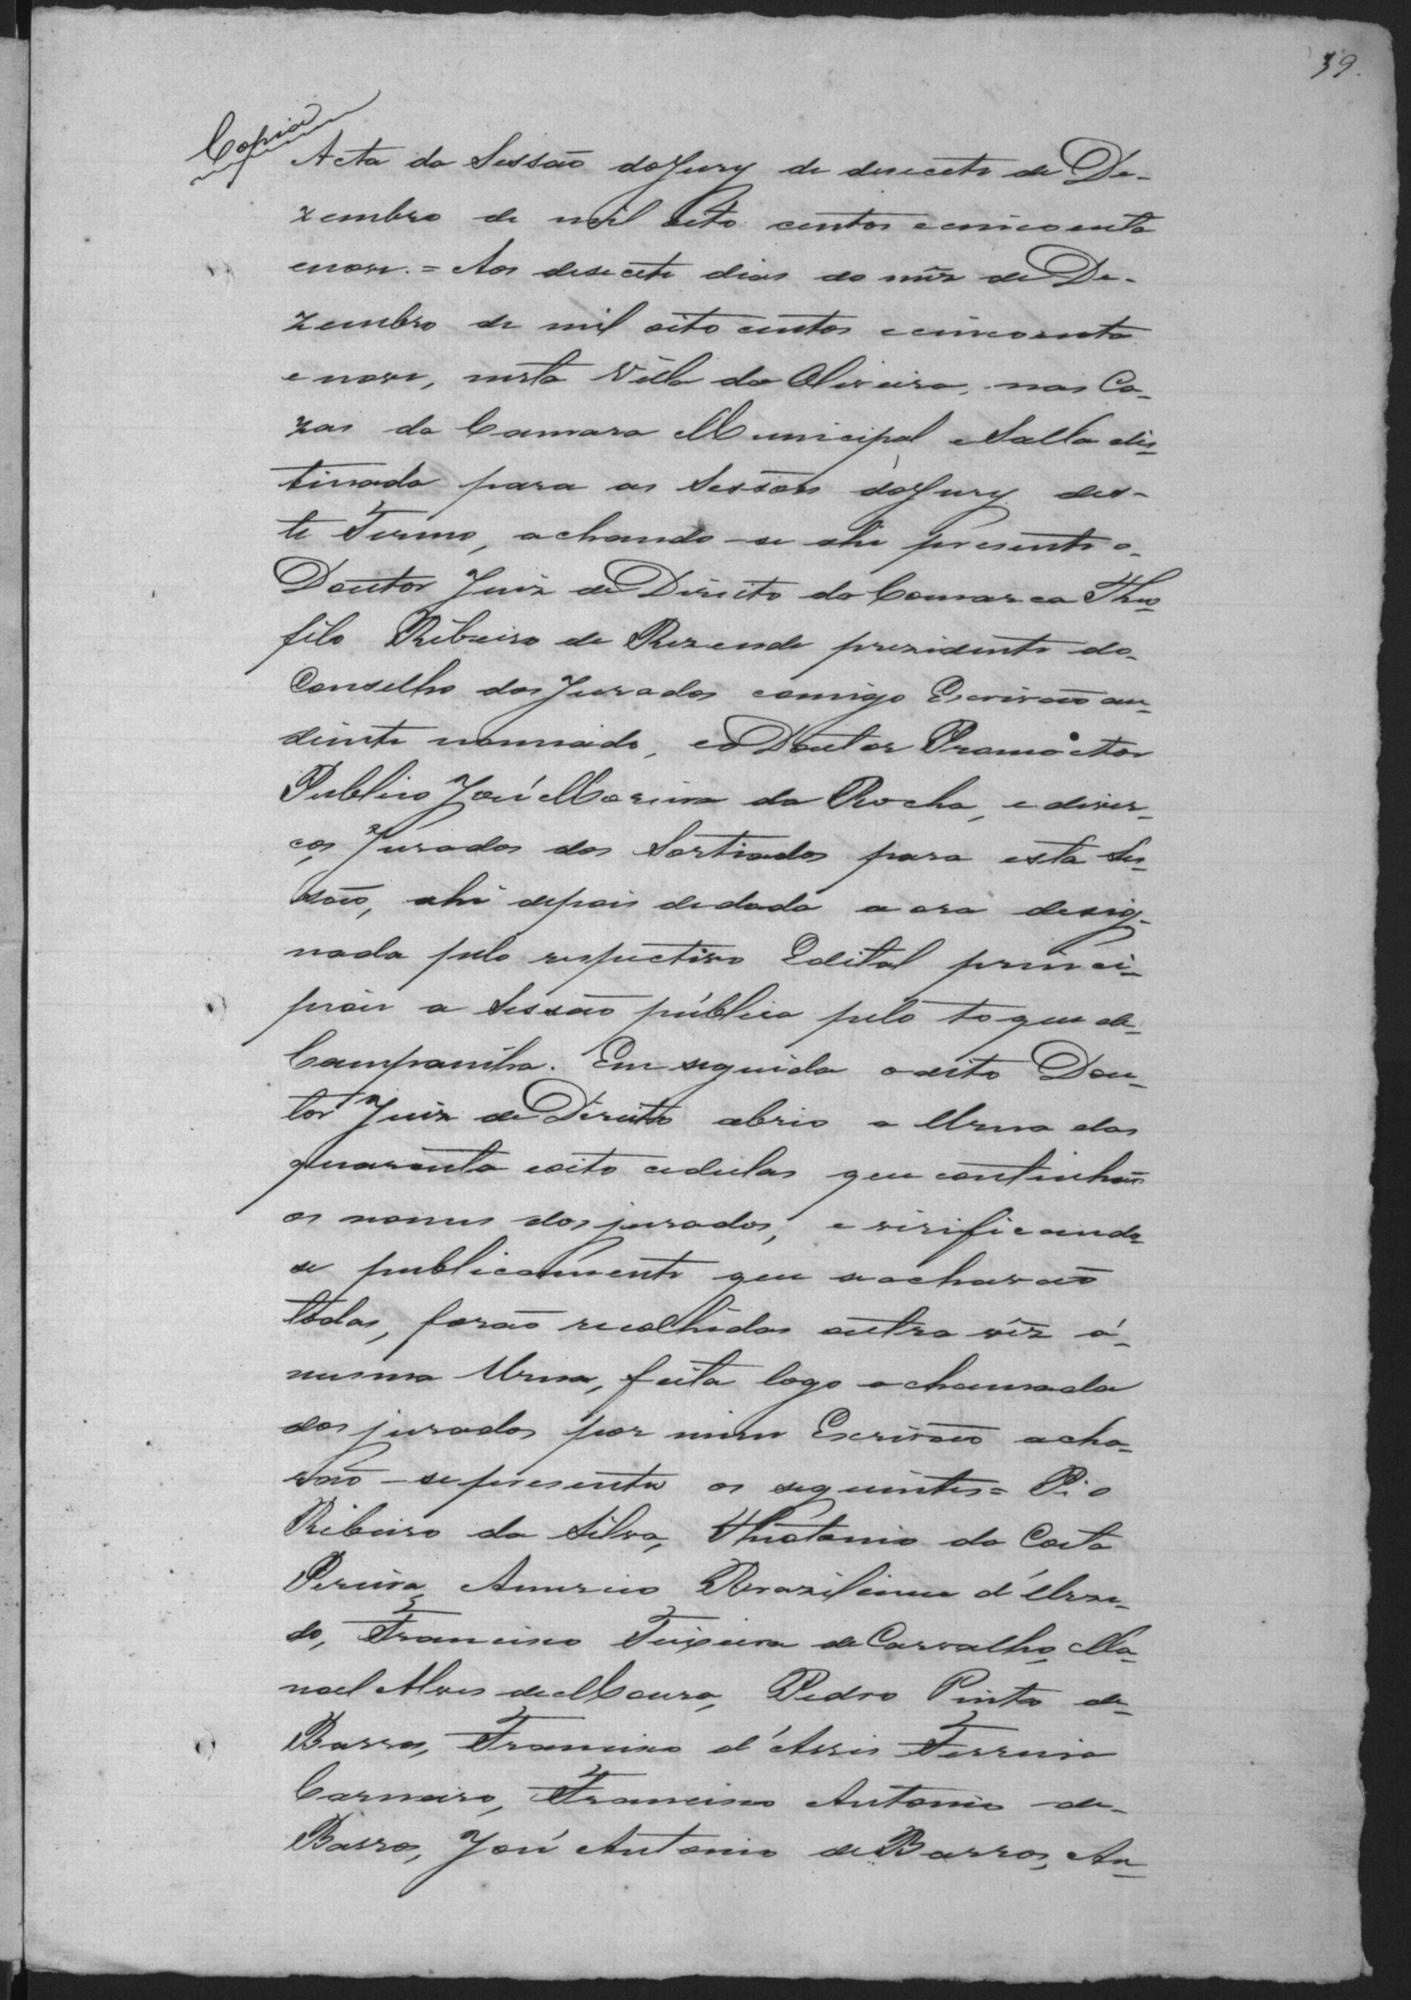 39.
Copia
Acta da Sessão do Jury de desecete de De-
zembro de mil oito centos e cincoenta
enove. = Aos desecete dias do mêz de De-
zembro de mil oito centos e cincoenta
e nove, nesta Villa da Oliveira, nas Ca-
zas da Camara Municipal e Salla des-
tinada para as Sessões do Jury des-
te Termo, achando-se ahi presente o
Doutor Juiz de Direito da Comarca Theo-
filo Ribeiro de Rezende prezidente do
Conselho dos Jurados comigo Escrivão au-
diente nomiado, eo Doutor Promoctor
Publico José Marina da Rocha, e diver-
ços Jurados dos Sortiados para esta Ses-
são, ahi depois dedada a ora desig-
nada pelo respectivo Edital princi-
piou a Sessão publica pelo toque de
Campaniha. Em seguida o dito Dou-
tor Juiz de Direito abrio a Urna das
quarenta eoito cedulas que continhão
os nomes dos jurados, e virificando
se publicamente que seacharão
todas, forão recolhidas outra vêz á
mesma Urna, feita logo a chamada
dos jurados por mim Escrivão acha-
rão-se presentes os seguintes = Pio
Ribeiro da Silva, Theotonio da Costa
Pereira, Americo Brazilience d'Urze-
do, Francisco Teixeira de Carvalho, Ma-
noel Alves de Moura, Pedro Pinto de
Barros, Francisco d'Assis Ferreira
Carneiro, Francisco Antonio de
Barros, José Antonio de Barros, An-